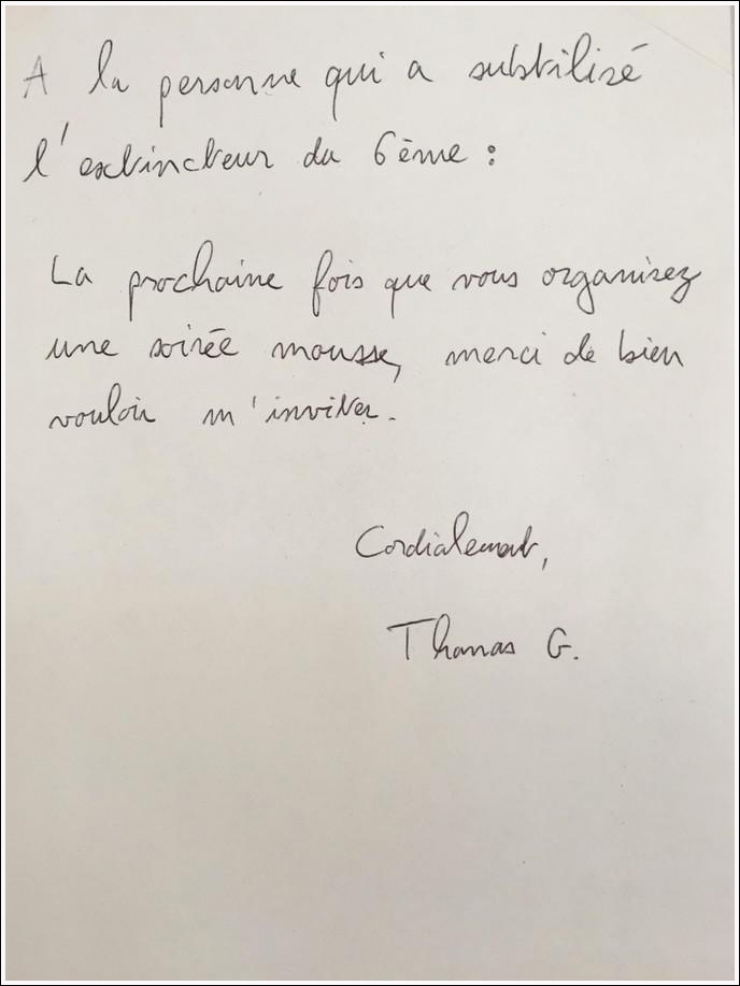 A la personne qui a subtilisé
l'extincteur du 6ème :
La prochaine fois que vous organisez
une soirée mousse, merci de bien
vouloir m'inviter.
Cordialement,
Thomas G.